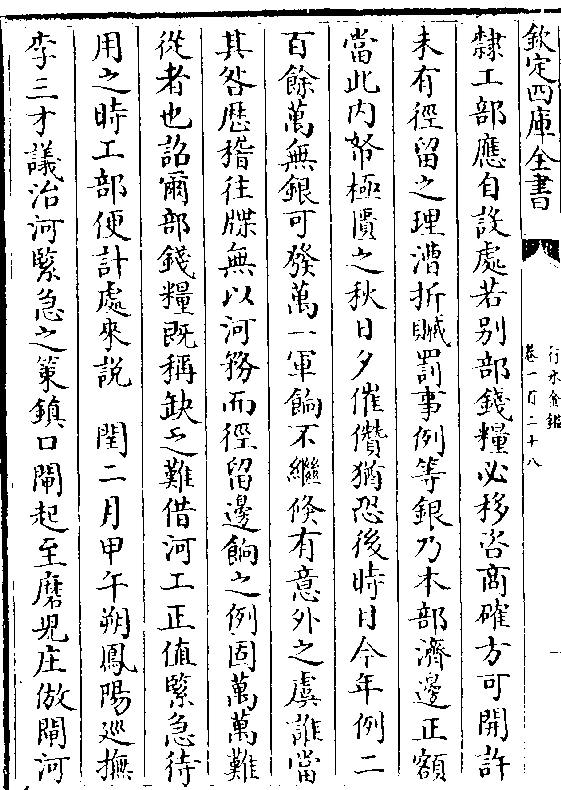 欽定四庫全書
行水金鑑
卷一百二十八
隸工部應自設處若别部錢糧必移咨商確方可開許
未有徑留之理漕折贓罰事例等銀乃本部濟邊正額
當此内帑極匱之秋日夕催儧猶恐後時日今年例二
百餘萬無銀可發萬一軍餉不繼倏有意外之虞誰當
其咎歴稽往牒無以河務而徑留邊餉之例固萬萬難
從者也詔爾部錢糧既稱缺乏難借河工正值緊急待
用之時工部便計處來説 閏二月甲午朔鳳陽廵撫
李三才議治河緊急之策鎮口閘起至磨兒庄倣閘河